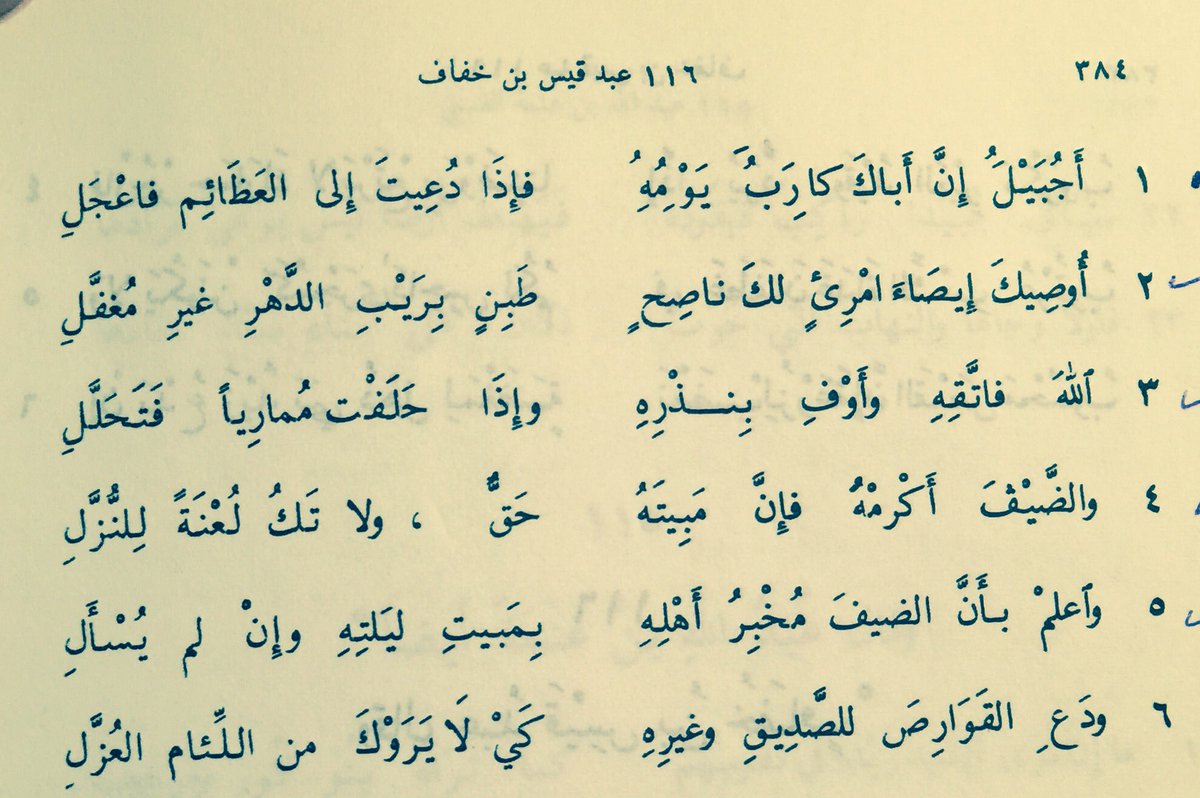 ٣٨٤ ١١٦ عبد قيس بن خفاف
١ أَجُبَيْلُ إِنَّ أَباكَ كارِبُ يَوْمِهِ فإِذَا دُعِيتَ إِلى العَظَائِم فاعْجَلِ
٢ أُوصِيكَ إِيصَاءَ امْرِئٍ لكَ ناصِحٍ طَبِنٍ بِرَيْبِ الدَّهْرِ غيرِ مُغفَّلِ
٣ ٱللهَ فاتَّقِهِ وأَوْفِ بِنَذْرِهِ وإِذَا حَلَفْت مُمارِياً فَتَحَلَّلِ
٤ والضَّيْفَ أَكْرِمْهُ فإِنَّ مَبِيتَهُ حَقٌّ ، ولا تَكُ لُعْنَةً لِلنُّزَّلِ
٥ وٱعلمْ بأَنَّ الضيفَ مُخْبِرُ أَهْلِهِ بِمَبيتِ ليَلتِهِ وإِنْ لم يُسْأَلِ
٦ ودَعِ القَوَارِصَ للصَّدِيقِ وغيرِهِ كَيْ لَا يَرَوْكَ من اللِّئام العُزَّلِ